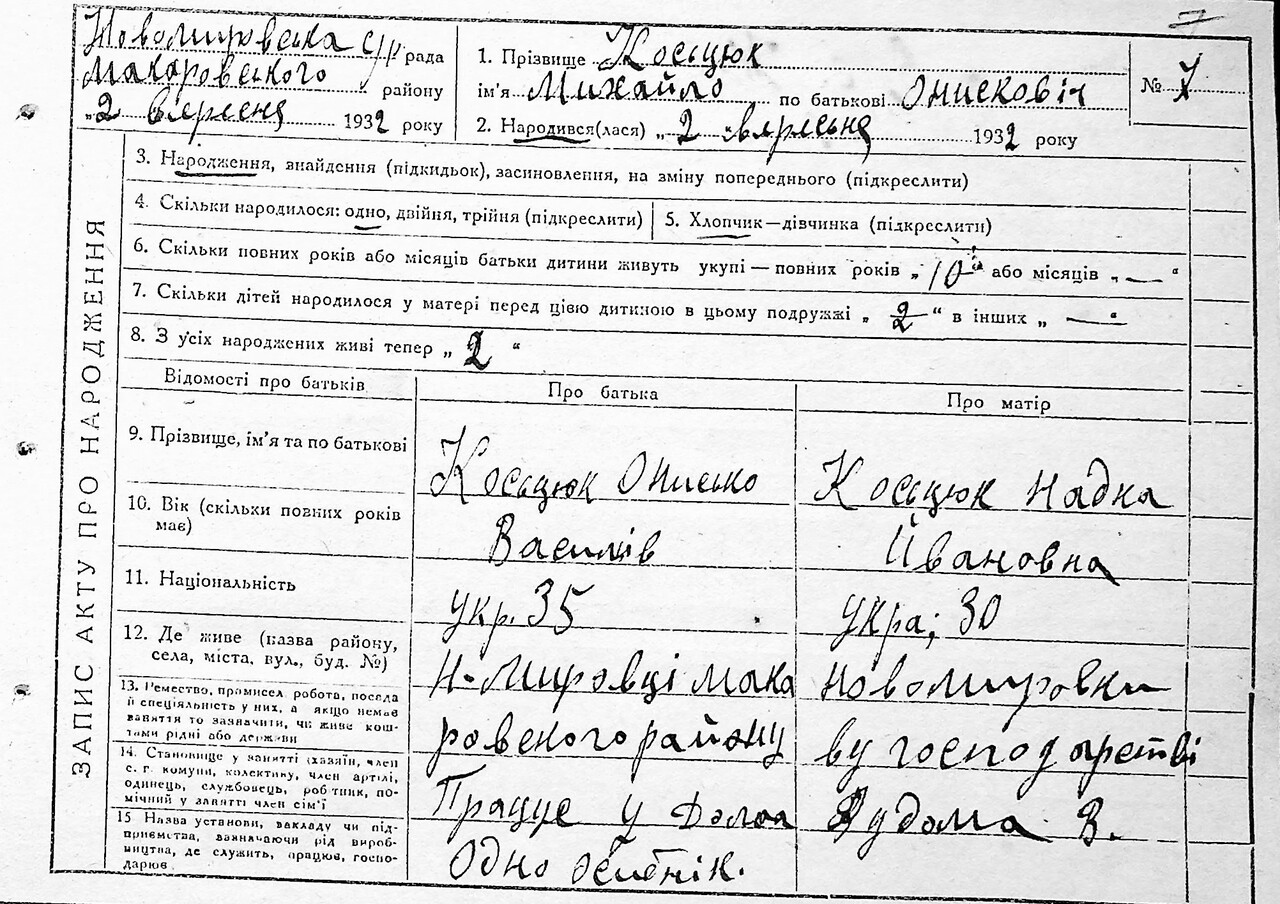 7
Новомировська с/рада
Макаровського району
„2 вересня 1932 року
1. Прізвище Косьцюк
ім'я Михайло по батькові Онискович
2. Народився(лася) „2 „вересьня 1932 року
№ 7
ЗАПИС АКТУ ПРО НАРОДЖЕННЯ
3. Народження, знайдення (підкидьок), засиновлення, на зміну попереднього (підкреслити)
4. Скільки народилося: одно, двійня, трійня (підкреслити)
5. Хлопчик—дівчинка (підкреслити)
6. Скільки повних років або місяців батьки дитини живуть укупі—повних років „10" або місяців „—"
7. Скільки дітей народилося у матері перед цією дитиною в цьому подружжі „2" в інших „—"
8. З усіх народжених живі тепер „2"
Відомості про батьків
Про батька
Про матір
9. Прізвище, ім'я та по батькові
10. Вік (скільки повних років
має)
11. Національність
12. Де живе (назва району,
села, міста, вул., буд. №)
13. Ремество, промисел, робота, посада
й спеціяльність у них, а якщо немає
заняття то зазначити, чи живе кош-
тами рідні або держави
14. Становище у занятті (хазяїн, член
с. г. комуни, колективу, член артілі,
одинець, службовець, робітник, по-
мічний у занятті член сім'ї
15 Назва установи, закладу чи під-
приємства, зазначаючи рід вироб-
ництва, де служить, працює, госпо-
дарює
Косьцюк Онисько
Василів
укр. 35
Н-Мировці Мака
ровского району
Працює у
Одноосібнік.
Косьцюк Надка
Йвановна
укра; 30
Новомировки
ву господарстві
Вудома В.